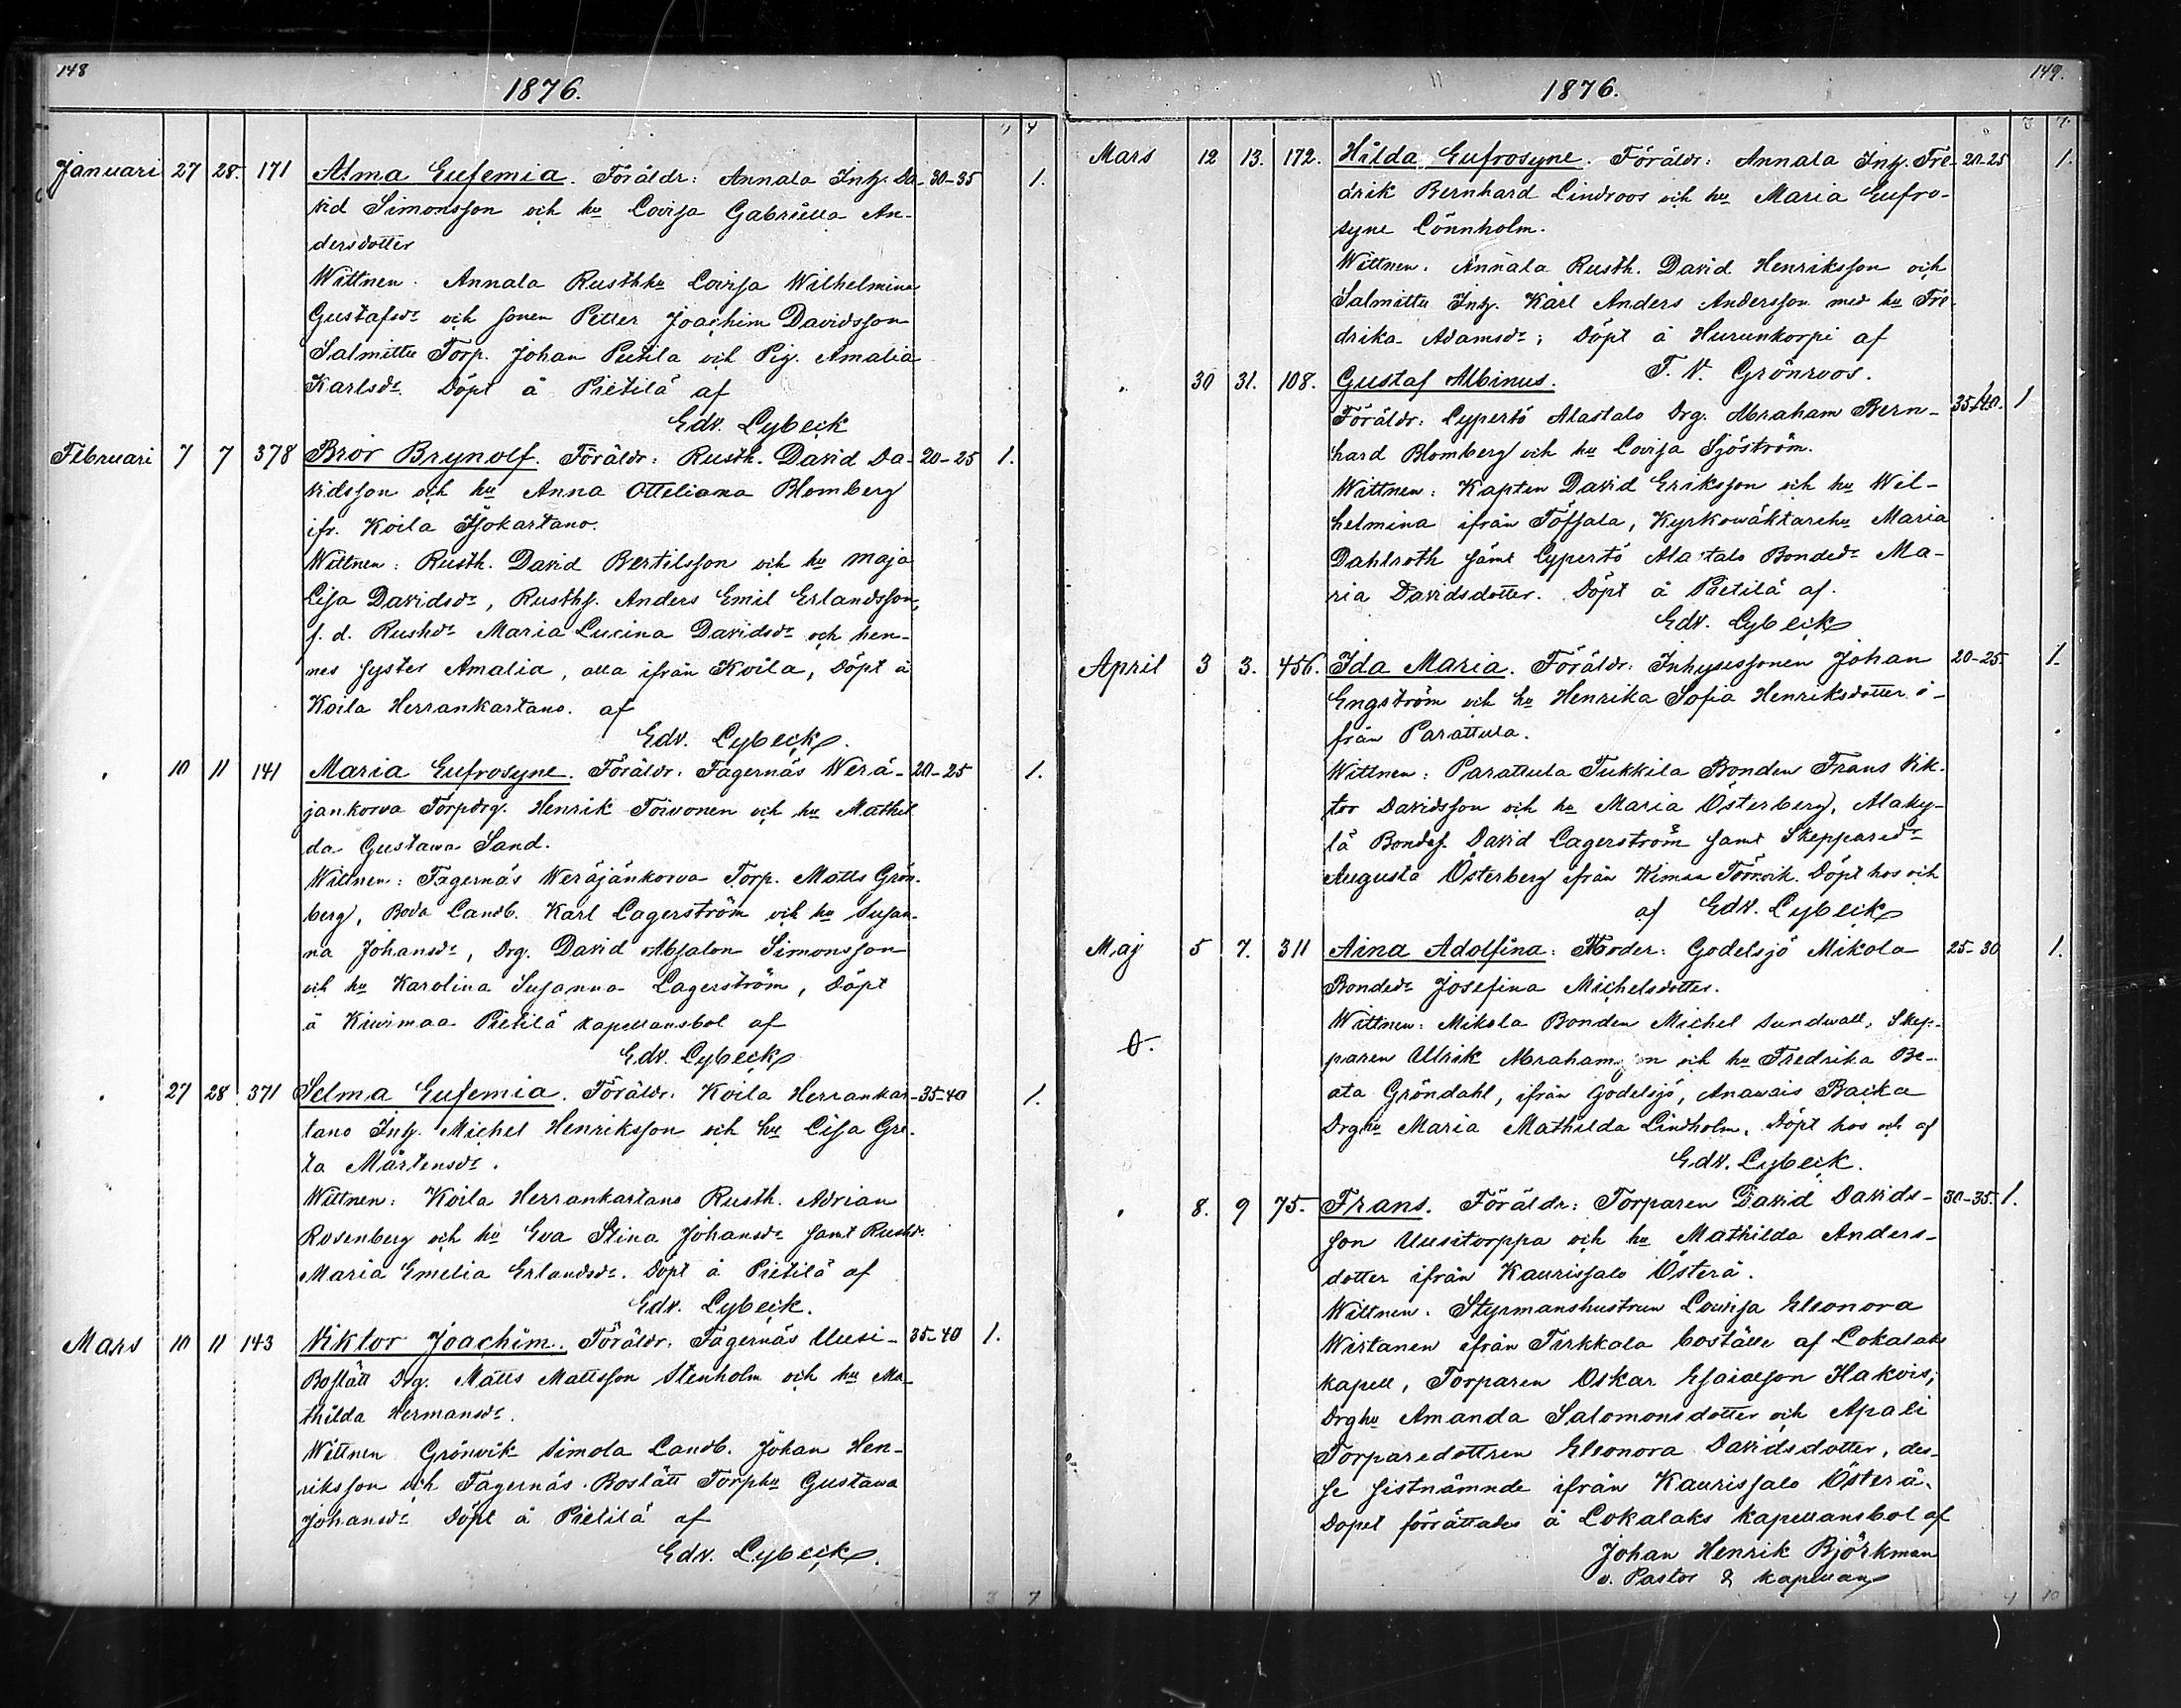 148
1876.
3 4
Januari 27 28. 171 Alma Eufemia. Föräldr: Annala Inh. Da- 30-35 1.
vid Simonsson och hu Lovisa Gabriella An-
dersdotter
Wittnen. Annala Rusthhu Lovisa Wilhelmina
Gustafsdr och sonen Petter Joachim Davidsson
Salmittu Torp. Johan Pietilä och Pig. Amalia
Karlsdr. Döpt å Pietilä af
Edv. Lybeck
Februari 7 7 378 Bror Brynolf. Föräldr: Rusth. David Da- 20-25 1.
vidsson och hu Anna Otteliana Blomberg
ifr. Koila Isokartano.
Wittnen: Rusth. David Bertilsson och hu Maja
Lisa Davidsdr, Rusths. Anders Emil Erlandsson,
f. d. Rusthdr Maria Lucina Davidsdr och hen-
nes syster Amalia, alla ifrån Koila, Döpt å
Koila Herrankartano. af
Edv. Lybeck.
" 10 11 141 Maria Eufrosyne. Föräldr: Fagernäs Werä- 20-25 1.
jänkorva Torpdrg. Henrik Toivonen och hu Mathil
da Gustava Sand.
Wittnen: Fagernäs Weräjänkorva Torp. Matts Grön-
berg, Boda Landb. Karl Lagerström och hu Susan-
na Johansdr, Drg. David Absalon Simonsson
och hu Karolina Susanna Lagerström, Döpt
å Kiwimaa Pietilä kapellansbol af
Edv. Lybeck
" 27 28 371 Selma Eufemia. Föräldr: Koila Herrankar- 35-40 1.
tano Inh. Michel Henriksson och hu Lisa Gre-
ta Mårtensdr.
Wittnen: Koila Herrankartano Rusth. Adrian
Rosenberg och hu Eva Stina Johansdr samt Rusthdr
Maria Emelia Erlandsdr. Döpt å Pietilä af
Edv. Lybeck.
Mars 10 11 143 Viktor Joachim. Föräldr: Fagernäs Uusi- 35-40 1.
Bostätt Drg. Matts Mattsson Stenholm och hu Ma-
thilda Hermansdr.
Wittnen Grönvik Simola Landb. Johan Hen-
riksson och Fagernäs Bostätt Torphu Gustava
Johansdr Döpt å Pietilä af
Edv. Lybeck.
3 7
149.
1876.
3 7.
Mars 12 13. 172. Hilda Eufrosyne. Föräldr: Annala Inh. Fre- 20-25 1.
drik Bernhard Lindroos och hu Maria Eufro-
syne Lönnholm.
Wittnen. Annala Rusth. David Henriksson och
Salmittu Inh. Karl Anders Andersson med hu Fre-
drika Adamsdr; Döpt å Hurunkorpi af
F. V. Grönroos.
" 30 31. 108. Gustaf Albinus.
Föräldr: Lypertö Alastalo Drg. Abraham Bern- 35-40. 1
hard Blomberg och hu Lovisa Sjöström.
Wittnen: Kapten David Eriksson och hu Wil-
helmina ifrån Töfsala, Kyrkowäktarehu Maria
Dahlroth samt Lypertö Alastalo Bondedr Ma-
ria Davidsdotter. Döpt å Pietilä af.
Edv. Lybeck
April 3 3. 456. Ida Maria. Föräldr: Inhysessonen Johan 20-25. 1.
Engström och hu Henrika Sofia Henriksdotter i-
från Parattula.
Wittnen: Parattula Tukkila Bonden Frans Vik-
tor Davidsson och hu Maria Österberg, Alaky-
lä Bondes. David Lagerström samt Skepparedr
Augusta Österberg ifrån Kimaa Törnvik. Döpt hos och
af Edv. Lybeck
Maj 5 7. 311 Aina Adolfina: Moder: Godelsjö Mikola 25-30 1.
Bondedr Josefina Michelsdotter.
Wittnen: Mikola Bonden Michel Sundwall, Skep-
paren Ulrik Abrahamsson och hu Fredrika Be-
ata Gröndahl, ifrån Godelsjö, Anawais Backa
Drghu Maria Mathilda Lindholm. Döpt hos och af
Edv. Lybeck.
" 8. 9 75. Frans. Föräldr: Torparen David Davids- 30-35. 1.
son Uusitorppa och hu Mathilda Anders-
dotter ifrån Kaurissalo Österå.
Wittnen. Styrmanshustrun Lovisa Eleonora
Wirtanen ifrån Tirkkala boställe af Lokalaks
kapell, Torparen Oskar Esaiasson Hakois,
Drghu Amanda Salomonsdotter och Apali
Torparedottren Eleonora Davidsdotter, des-
se sistnämnde ifrån Kaurissalo Österå.
Dopet förrättades å Lokalaks kapellansbol af
Johan Henrik Björkman
v. Pastor & kapellan
4 10